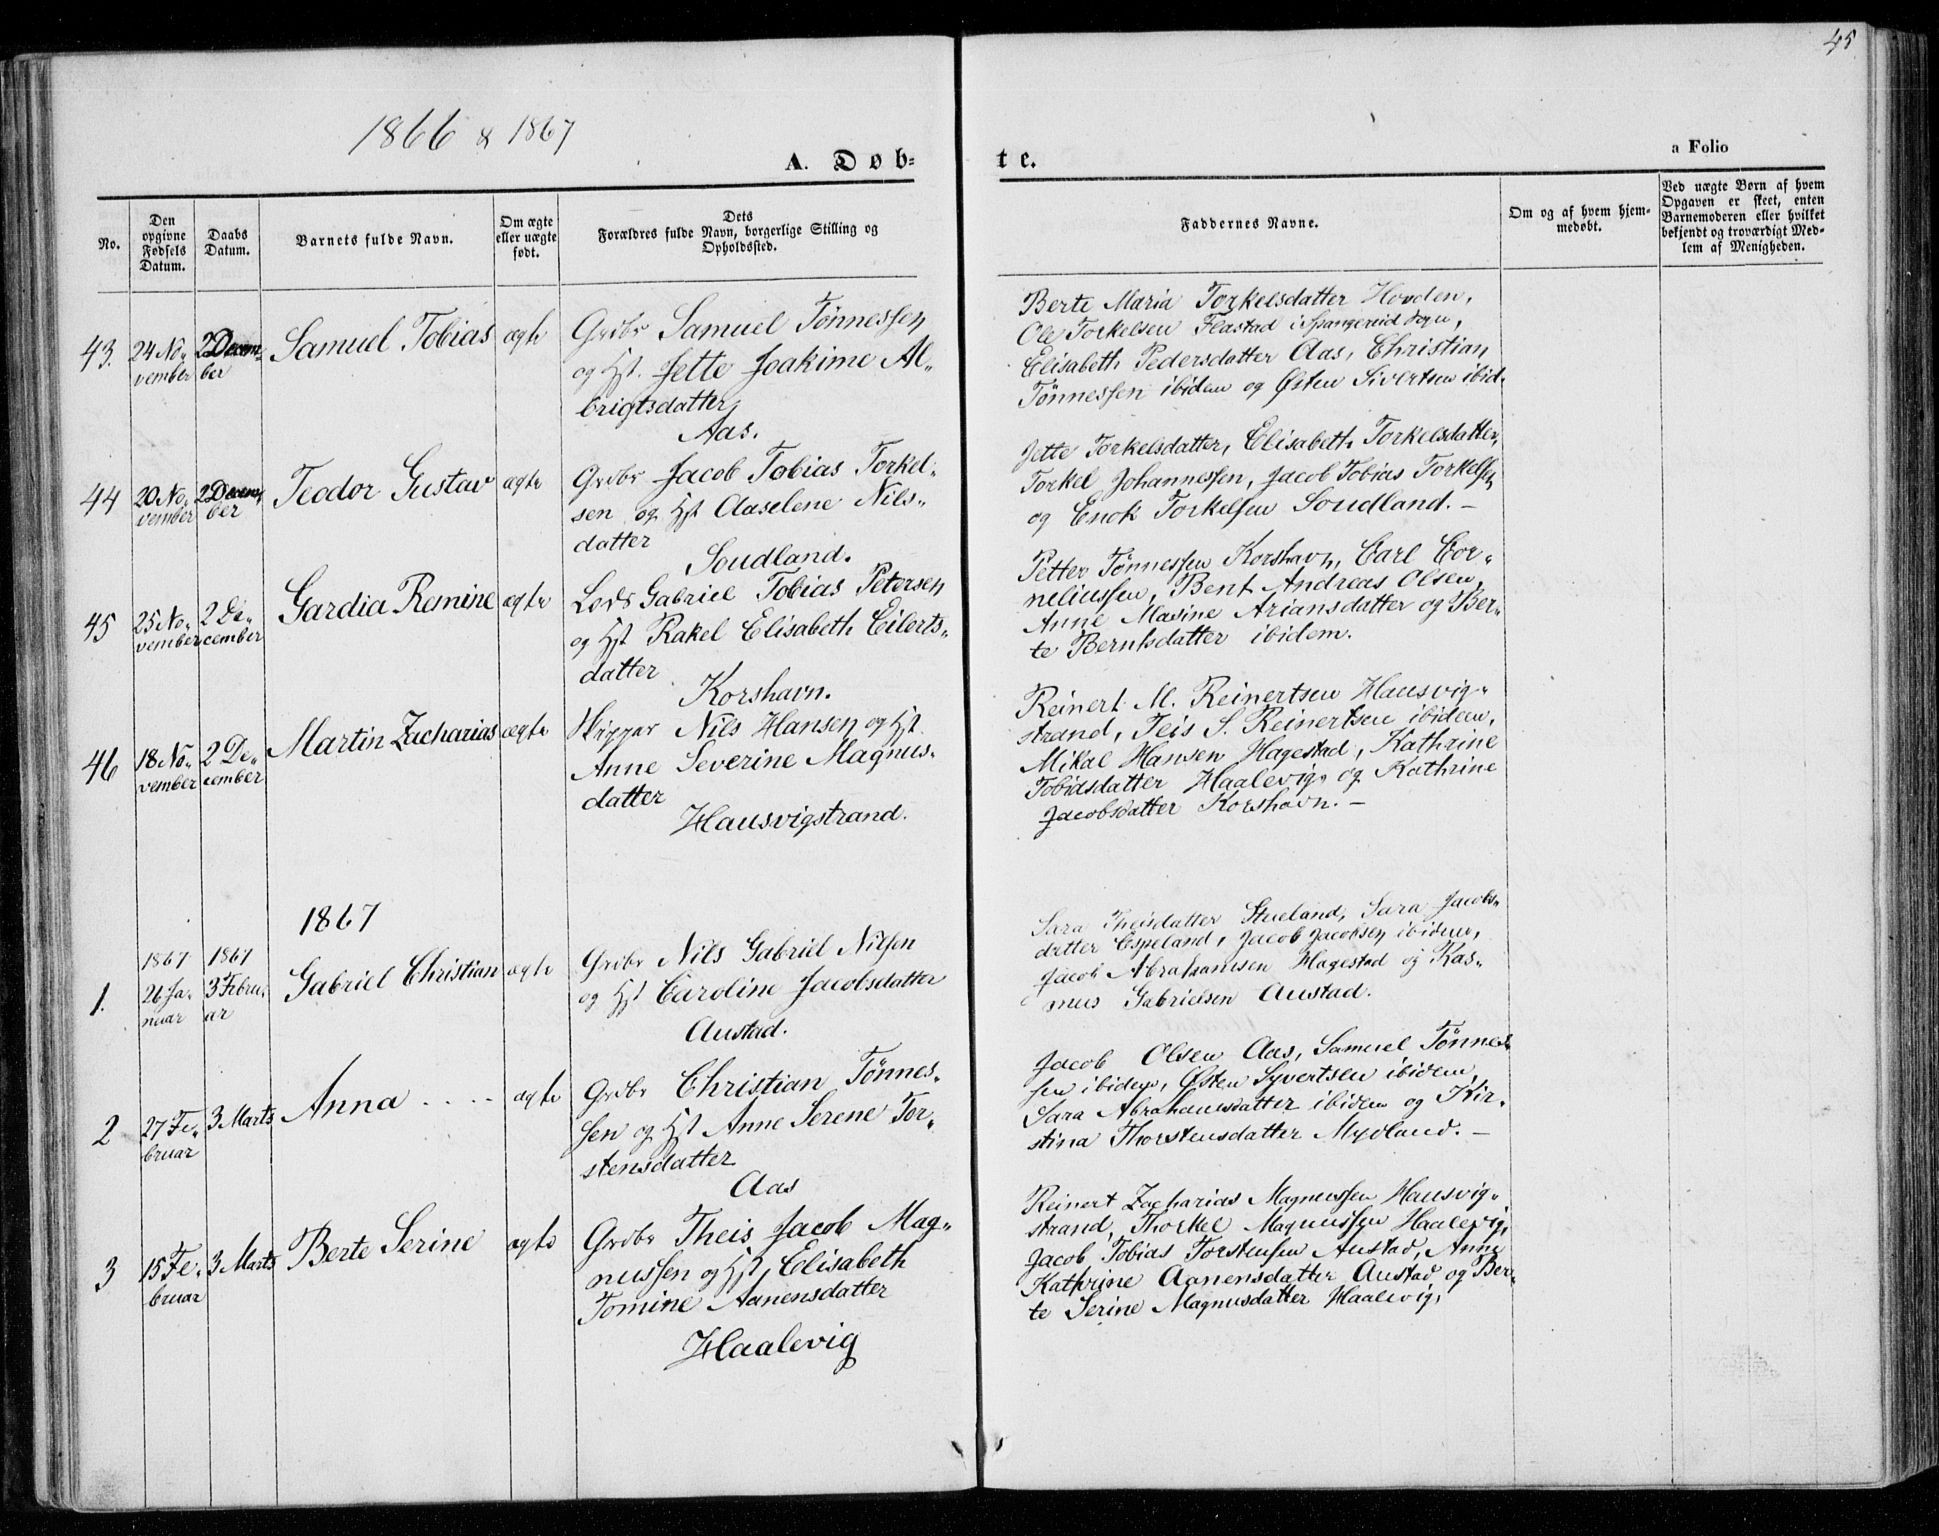 45
1866 & 1867
A. Døb-
te.
a Folio
No.
Den
opgivne
Fødsels
Datum.
Daabs
Datum.
Barnets fulde Navn.
Om ægte
eller uægte
født.
Dets
Forældres fulde Navn, borgerlige Stilling og
Opholdssted.
Faddernes Navne.
Om og af hvem hjem-
medøbt.
Ved uægte Børn af hvem
Opgaven er skeet, enten
Barnemoderen eller hvilket
bekjendt og troværdigt Med-
lem af Menigheden.
43.
24 No-
vember
2 Decem-
ber
Samuel Tobias
ægte
Grdbr Samuel Tønnessen
og Hst. Jette Joakime Al-
brigtsdatter
Aas.
Berte Maria Torkelsdatter Hovden,
Ole Torkelsen Flastad i Spangereid Sogn,
Elisabeth Pedersdatter Aas, Christian
Tønnessen ibidem og Østen Sivertsen ibid.
44
20 No-
vember
2 Decem-
ber
Teodor Gustav
ægte
Grdbr Jacob Tobias Torkel-
sen og Hst Aaselene Nils-
datter
Soudland.
Jette Torkelsdatter, Elisabeth Torkelsdatter,
Torkel Johannessen, Jacob Tobias Torkelsen
og Enok Torkelsen Soudland. —
45
25 No-
vember
2 De-
cember
Gardia Remine
ægte
Lods Gabriel Tobias Petersen
og Hst Rakel Elisabeth Eilerts-
datter
Korshavn.
Petter Tønnessen Korshavn, Carl Cor-
neliussen, Bent Andreas Olsen,
Anne Masine Ariansdatter og Ber-
te Berntsdatter ibidem.
46
18 No-
vember
2 De-
cember
Martin Zacharias
ægte
Skipper Nils Hansen og Hst
Anne Severine Magnus-
datter
Hausvigstrand.
Reinert M. Reinertsen Hausvig-
strand, Teis S. Reinertsen ibidem,
Mikal Hansen Hagestad, Kathrine
Tobidsdatter Haalevig og Kathrine
Jacobsdatter Korshavn. —
1867
1.
1867
26 Ja-
nuar
1867
3 Febru-
ar
Gabriel Christian
ægte
Grdbr Nils Gabriel Nilsen
og Hst Caroline Jacobsdatter
Austad.
Sara Theisdatter Stueland, Sara Jacobs-
datter Espeland, Jacob Jacobsen ibidem,
Jacob Abrahamsen Hagestad og Ras-
mus Gabrielsen Austad.
2
27 Fe-
bruar
3 Marts
Anna . . . .
ægte
Grdbr Christian Tønnes-
sen og Hst Anne Serene Tor-
stensdatter
Aas
Jacob Olsen Aas, Samuel Tønnes-
sen ibidem, Østen Syvertsen ibidem,
Sara Abrahamsdatter ibidem og Kir-
stina Thorstensdatter Mydland. —
3
15 Fe-
bruar
3 Marts
Berte Serine
ægte
Grdbr Theis Jacob Mag-
nussen og Hst, Elisabeth
Tomine Aanensdatter
Haalevig
Reinert Zacharias Magnussen Hausvig-
strand, Thorkel Magnussen Haalevig,
Jacob Tobias Torstensen Austad, Anne
Kathrine Aanensdatter Austad og Ber-
te Serine Magnusdatter Haalevig.